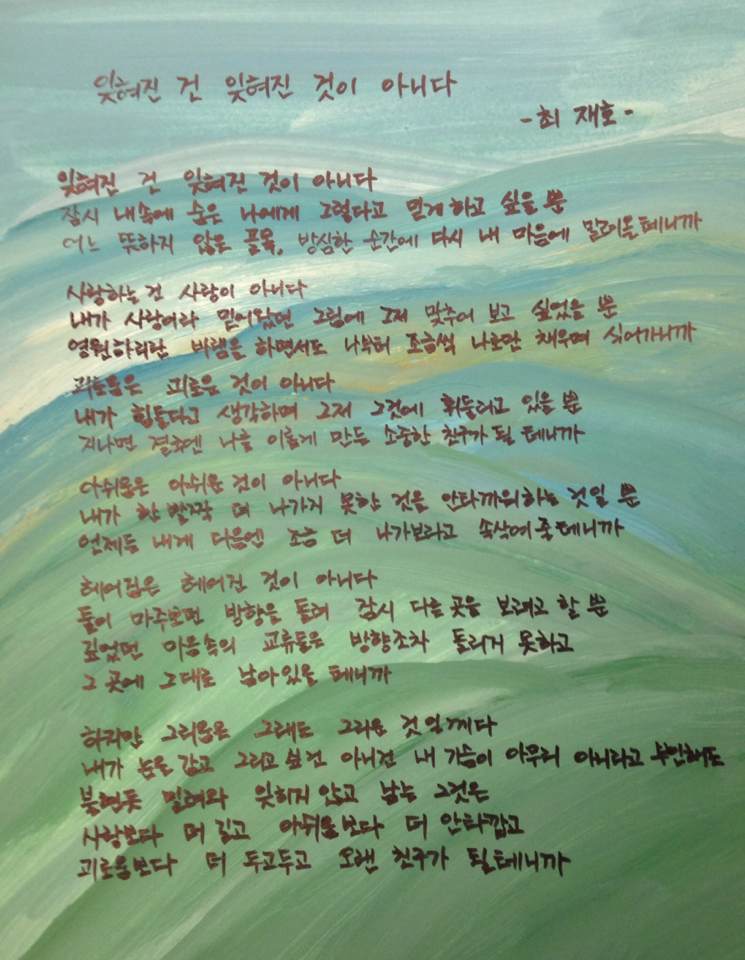 잊혀진 건 잊혀진 것이 아니다
-최 재호-
잊혀진 건 잊혀진 것이 아니다
잠시 내속에 숨은 나에게 그렇다고 믿게 하고 싶을 뿐
어느 뜻하지 않은 길목, 방심한 순간에 다시 내 마음에 밀려올테니까
사랑하는 건 사랑이 아니다
내가 사랑이라 믿어왔던 그림에 그저 맞추어 보고 싶었을 뿐
영원하리란 바램을 하면서도 나부터 조금씩 나로만 채우며 식어가니까
괴로움은 괴로운 것이 아니다
내가 힘들다고 생각하며 그저 그것에 휘둘리고 있을 뿐
지나면 결국엔 나를 이롭게 만든 소중한 친구가 될 테니까
아쉬움은 아쉬운 것이 아니다
내가 한 발짝 더 나가지 못한 것을 안타까워하는 것일 뿐
언제든 내게 다음엔 조금 더 나가보라고 속삭여 줄테니까
헤어짐은 헤어진 것이 아니다
둘이 마주보던 방향을 돌려 잠시 다른 곳을 보려고 할 뿐
깊었던 마음속의 교류들은 방향조차 돌리지 못하고
그 곳에 그대로 남아있을 테니까
하지만 그리움은 그래도 그리운 것일게다
내가 눈을 감고 그리고 싶건 아니건 내 가슴이 아무리 아니라고 부인해도
불현듯 밀려와 잊히지 않고 남는 그것은
사랑보다 더 깊고 아쉬움보다 더 안타깝고
괴로움보다 더 두고두고 오랜 친구가 될테니까